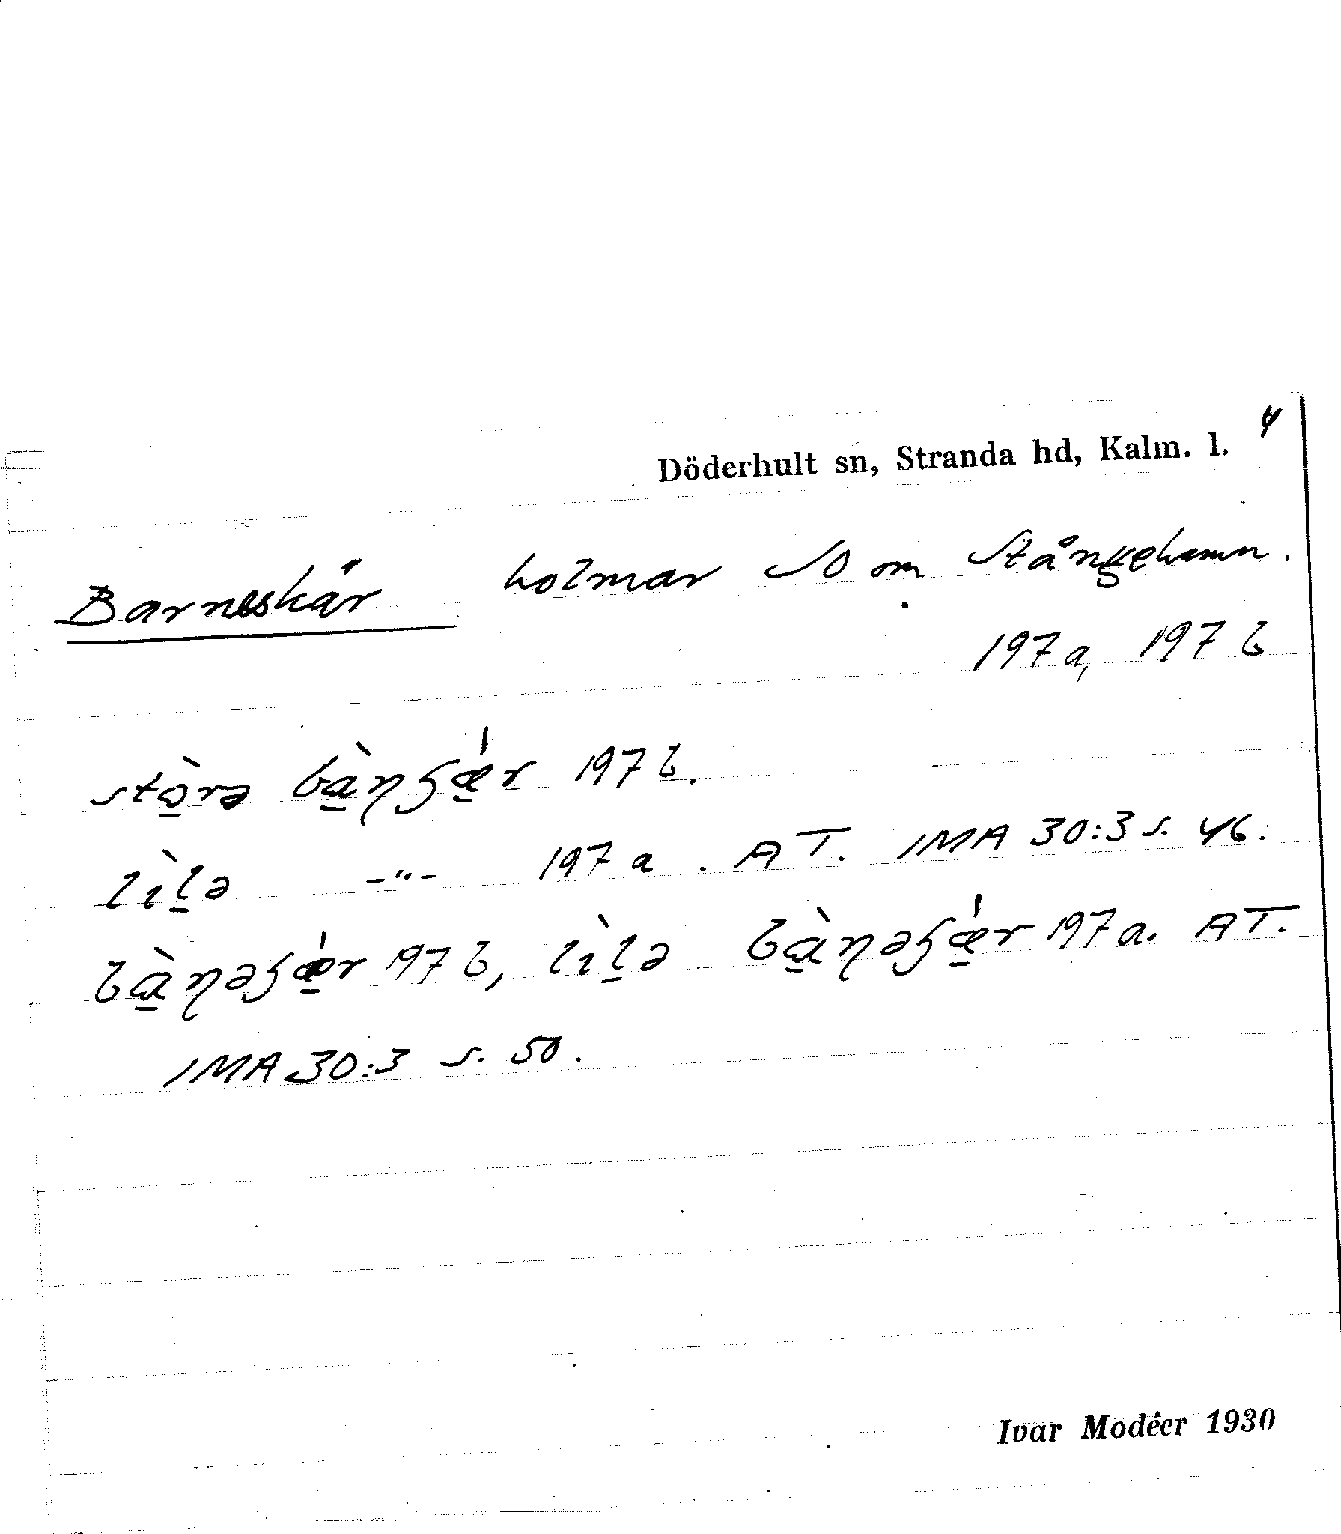 Döderhult sn, Stranda hd, Kalm. l. 4
Barneskär holmar SO om Stångehamn.
197a, 197b
stò̱rə bà̱ɳʂæ̱̀r 197b.
lìḻə -"- 197a. AT. IMA 30:3 s. 46.
bà̱ɳəʂæ̱̀r 197b, lìḻə bà̱ɳəʂæ̱̀r 197a. AT.
IMA 30:3 s. 50.
Ivar Modéer 1930